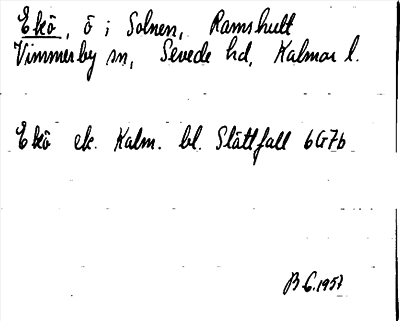 Ekö, ö i Solnen, Ramshult
Vimmerby sn, Sevede hd, Kalmar l.
Ekö ek. Kalm. bl. Slättfall 6G7b
B G. 1957